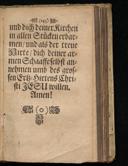 und dich deiner Kirchen
in allen Stücken erbar-
men/ und als der treue
Hirte/ dich deiner ar-
men Schaaffe selbst an-
nehmen umb des gros-
sen Ertz-Hertens Chri-
sti JESU willen.
Amen!